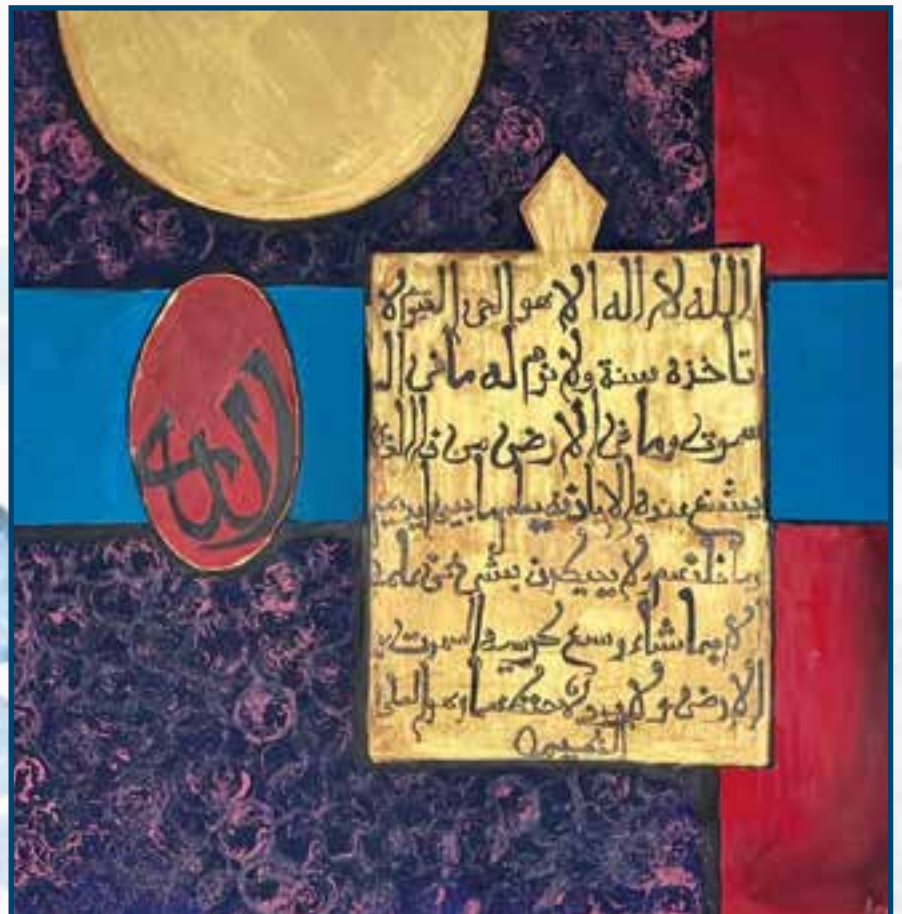 الله
الله لا اله الا هو الحى القيوم لا
تأخزه سنة ولا نوم له ما فى ال
سموت وما فى الارض من ذا الذى
يشفع عنده الا باذنه يعلم ما بين ايديهم
وما خلفهم ولا يحيطون بشىء من علمه
الا بما شاء وسع كرسيه السموت و
الارض ولا يوده حفظهما وهو العلى
العظيم